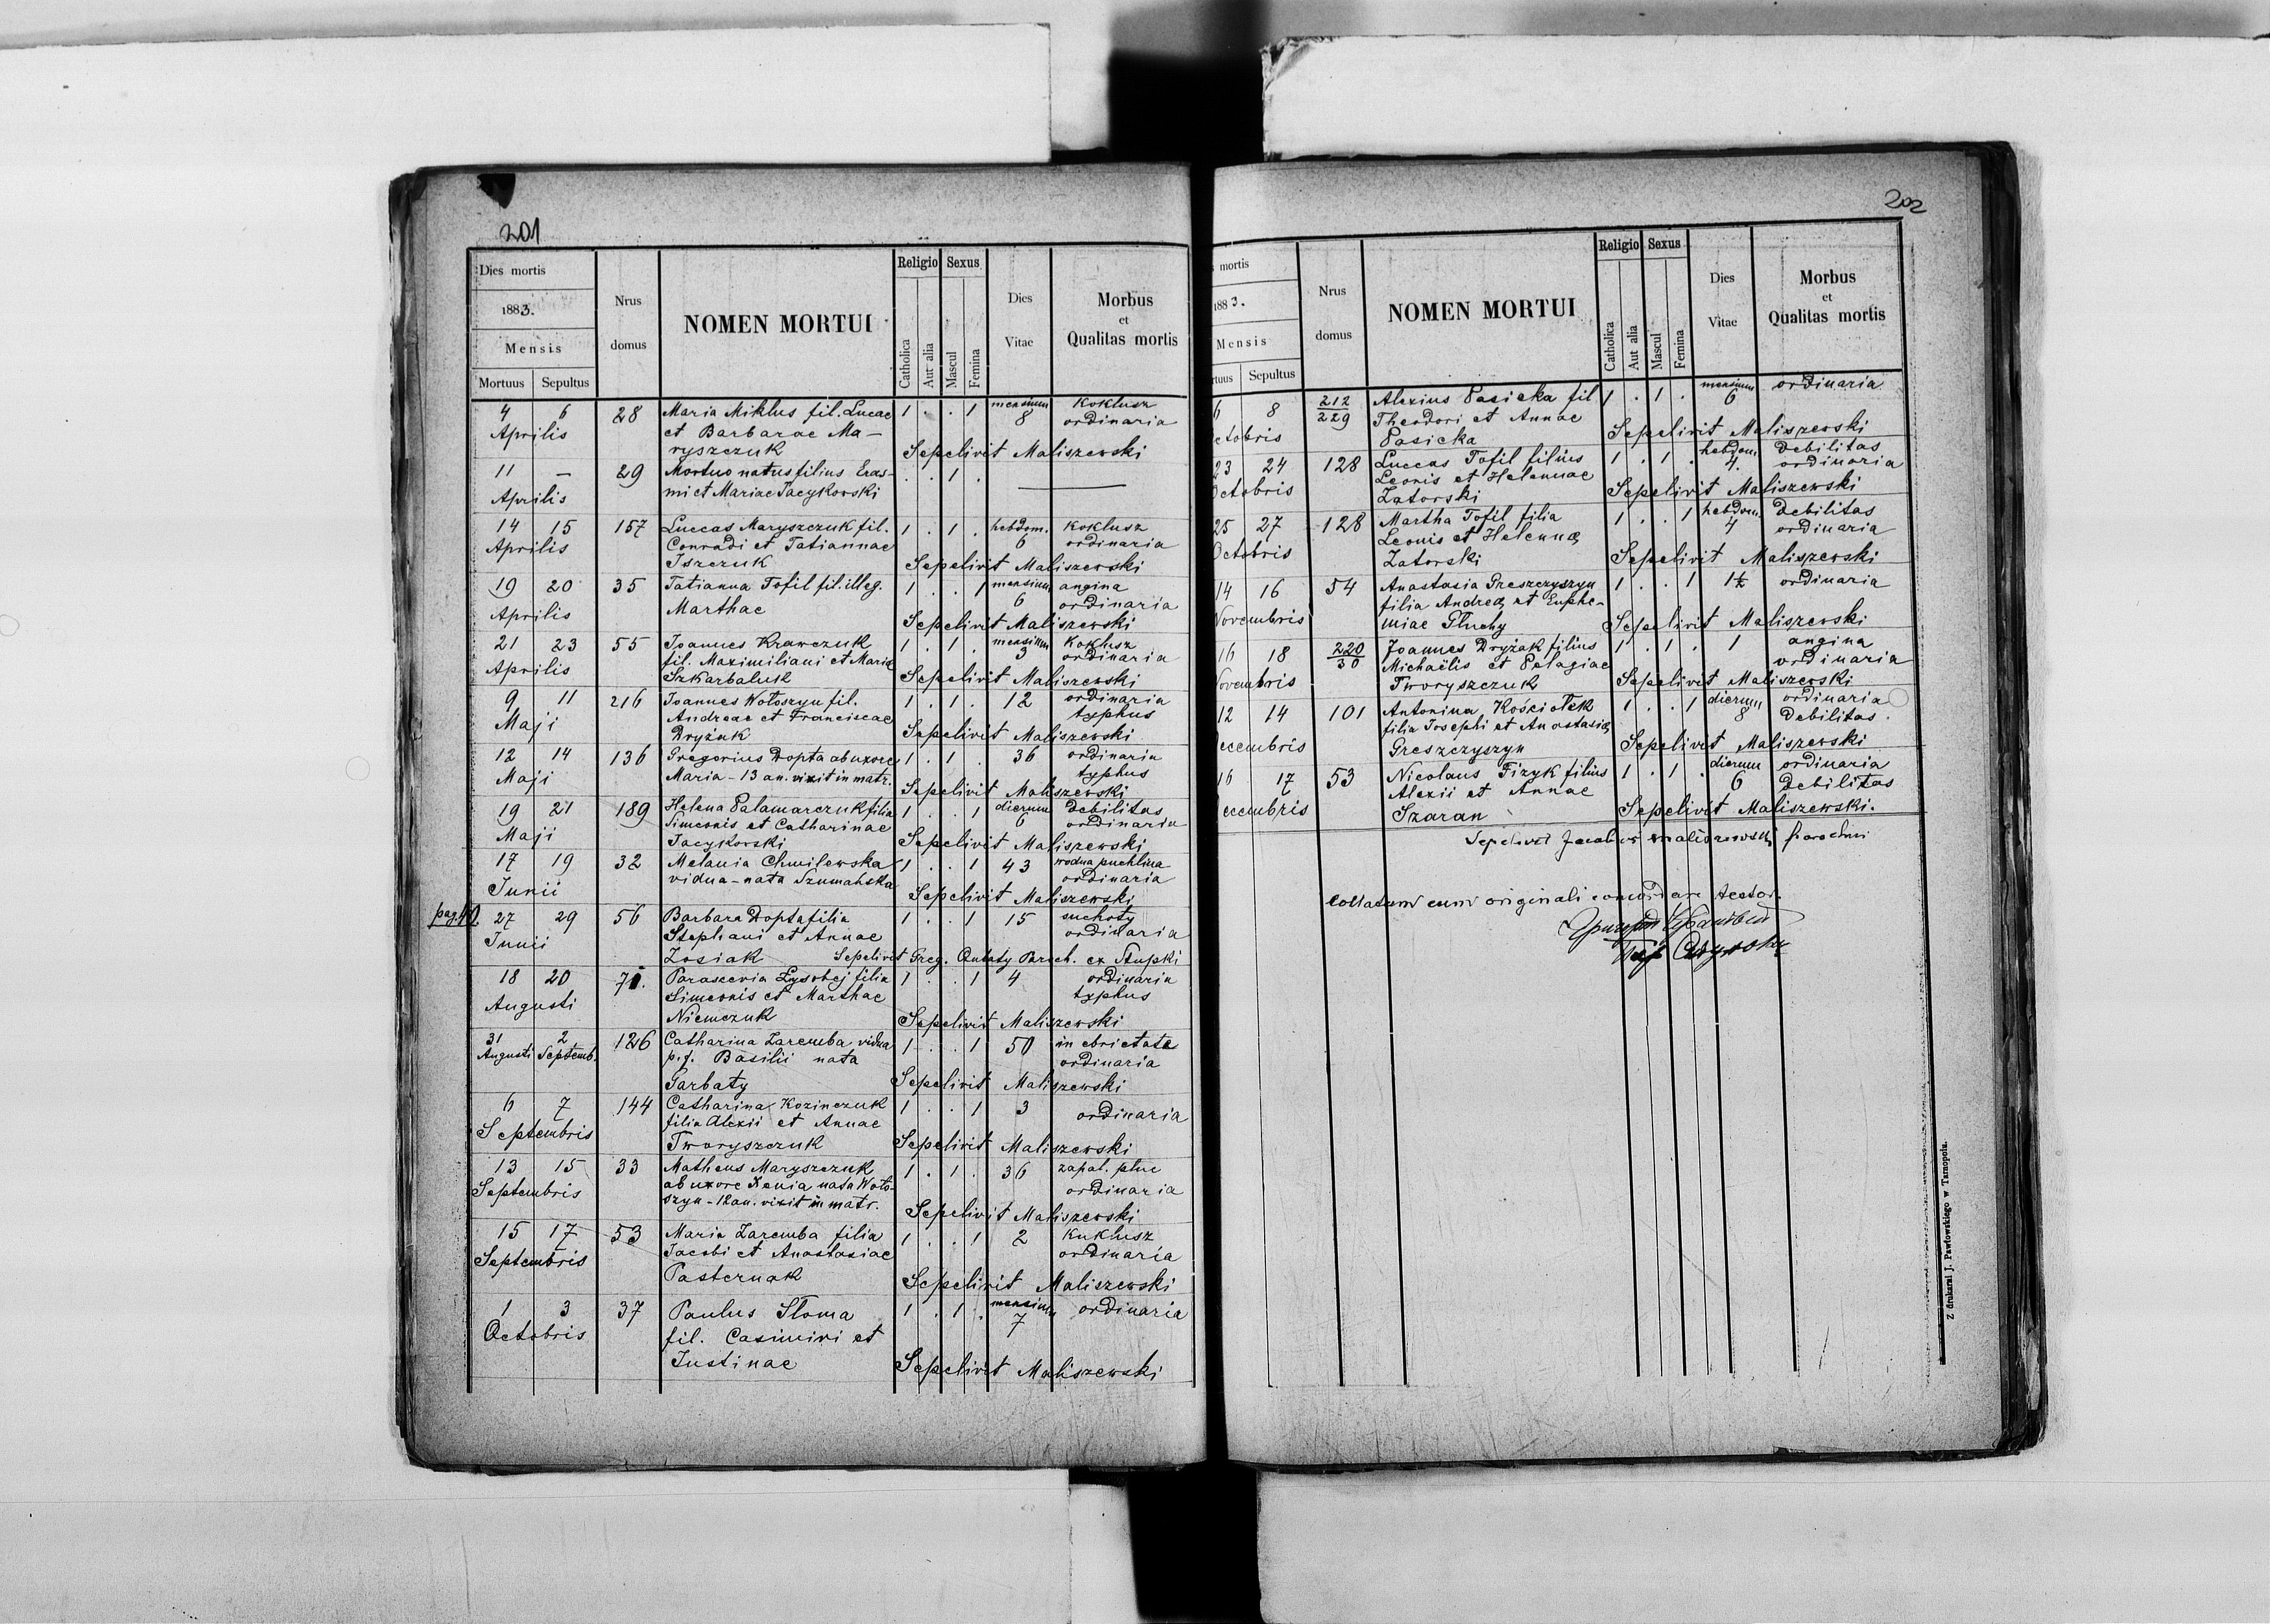 201
Dies mortis
1883.
Mensis
Mortuus Sepultus
Nrus domus
NOMEN MORTUI
Religio
Catholica
Aut alia
Sexus
Mascul
Femina
Dies Vitae
Morbus et Qualitas mortis
4 6 28 Maria Miklus fil. Lucae 1 . . 1 mensium 8 Koklusz
Aprilis et Barbarae Ma- ordinaria
ryszczuk Sepelivit Maliszewski
11 — 29 Mortuo natus filius Eras- . . 1 .
Aprilis mi et Mariae Jacykowski
14 15 157 Luccas Maryszczuk fil. 1 . 1 . hebdom. 6 Koklusz
Aprilis Conradi et Tatiannae ordinaria
Iszczuk Sepelivit Maliszewski
19 20 35 Tatianna Tofil fil. illeg. 1 . . 1 mensium 6 angina
Aprilis Marthae ordinaria
Sepelivit Maliszewski
21 23 55 Joannes Krawczuk 1 . 1 . mensium 3 Koklusz
Aprilis fil. Maximiliani et Mariae ordinaria
Szkarbaluk Sepelivit Maliszewski
9 11 216 Joannes Wołoszyn fil. 1 . 1 . 12 ordinaria
Maji Andreae et Franciscae typhus
Dryżuk Sepelivit Maliszewski
12 14 136 Gregorius Dopta ab uxore 1 . 1 . 36 ordinaria
Maji Maria - 13 an. vixit in matr. typhus
Sepelivit Maliszewski
19 21 189 Helena Palamarczuk filia 1 . . 1 dierum 6 Debilitas
Maji Simeonis et Catharinae ordinaria
Jacykowski Sepelivit Maliszewski
17 19 32 Melania Chmilewska 1 . . 1 43 wodna puchlina
Junii vidua - nata Szumańska ordinaria
Sepelivit Maliszewski
pag. 40
27 29 56 Barbara Dopta filia 1 . . 1 15 suchoty
Junii Stephani et Annae ordinaria
Zosiak Sepelivit Greg. Paroch. ex Stupki
18 20 71. Parascevia Łysobej filia 1 . . 1 4 ordinaria
Augusti Simeonis et Marthae typhus
Niemczuk Sepelivit Maliszewski
31 2 126 Catharina Zaremba vidua 1 . . 1 50 in ebrietate
Augusti Septemb. p. f. Basilii nata ordinaria
Garbaty Sepelivit Maliszewski
6 7 144 Catharina Kozinczuk 1 . . 1 3 ordinaria
Septembris filia Alexii et Annae
Tworyszczuk Sepelivit Maliszewski
13 15 33 Matheus Maryszczuk 1 . 1 . 36 zapal. płuc
Septembris ab uxore Xenia nata Woło- ordinaria
szyn - 12 an. vixit in matr. Sepelivit Maliszewski
15 17 53 Maria Zaremba filia 1 . . 1 2 Kuklusz
Septembris Jacobi et Anastasiae ordinaria
Pasternak Sepelivit Maliszewski
1 3 37 Paulus Słoma 1 . 1 . mensium 7 ordinaria
Octobris fil. Casimiri et
Justinae Sepelivit Maliszewski
202
s mortis
1883.
Mensis
rtuus Sepultus
Nrus domus
NOMEN MORTUI
Religio
Catholica
Aut alia
Sexus
Mascul
Femina
Dies Vitae
Morbus et Qualitas mortis
6 8 212/229 Alexius Pasicka fil 1 . 1 . mensium 6 ordinaria
ctobris Theodori et Annae
Pasicka Sepelivit Maliszewski
23 24 128 Luccas Tofil filius 1 . 1 . hebdom. 4. Debilitas
Octobris Leonis et Helennae ordinaria
Zatorski Sepelivit Maliszewski
25 27 128 Martha Tofil filia 1 . . 1 hebdom. 4 Debilitas
Octobris Leonis et Helennae ordinaria
Zatorski Sepelivit Maliszewski
14 16 54 Anastasia Greszczyszyn 1 . . 1 1½ ordinaria
Novembris filia Andreae et Euphe-
miae Płuchy Sepelivit Maliszewski
16 18 220/30 Joannes Dryżak filius 1 . 1 . 1 angina
Novembris Michaëlis et Pelagiae ordinaria
Tworyszczuk Sepelivit Maliszewski
12 14 101 Antonina Kościołek 1 . . 1 dierum 8 ordinaria
ecembris filia Josephi et Anastasiae Debilitas.
Greszczyszyn Sepelivit Maliszewski
16 17 53 Nicolaus Fizyk filius 1 . 1 . dierum 6 ordinaria
ecembris Alexii et Annae Debilitas
Szaran Sepelivit Maliszewski.
Sepelivit Jacobus Maliszewski parochus
Collatum cum originali concordare testor.
Z drukarni J. Pawłowskiego w Tarnopolu.